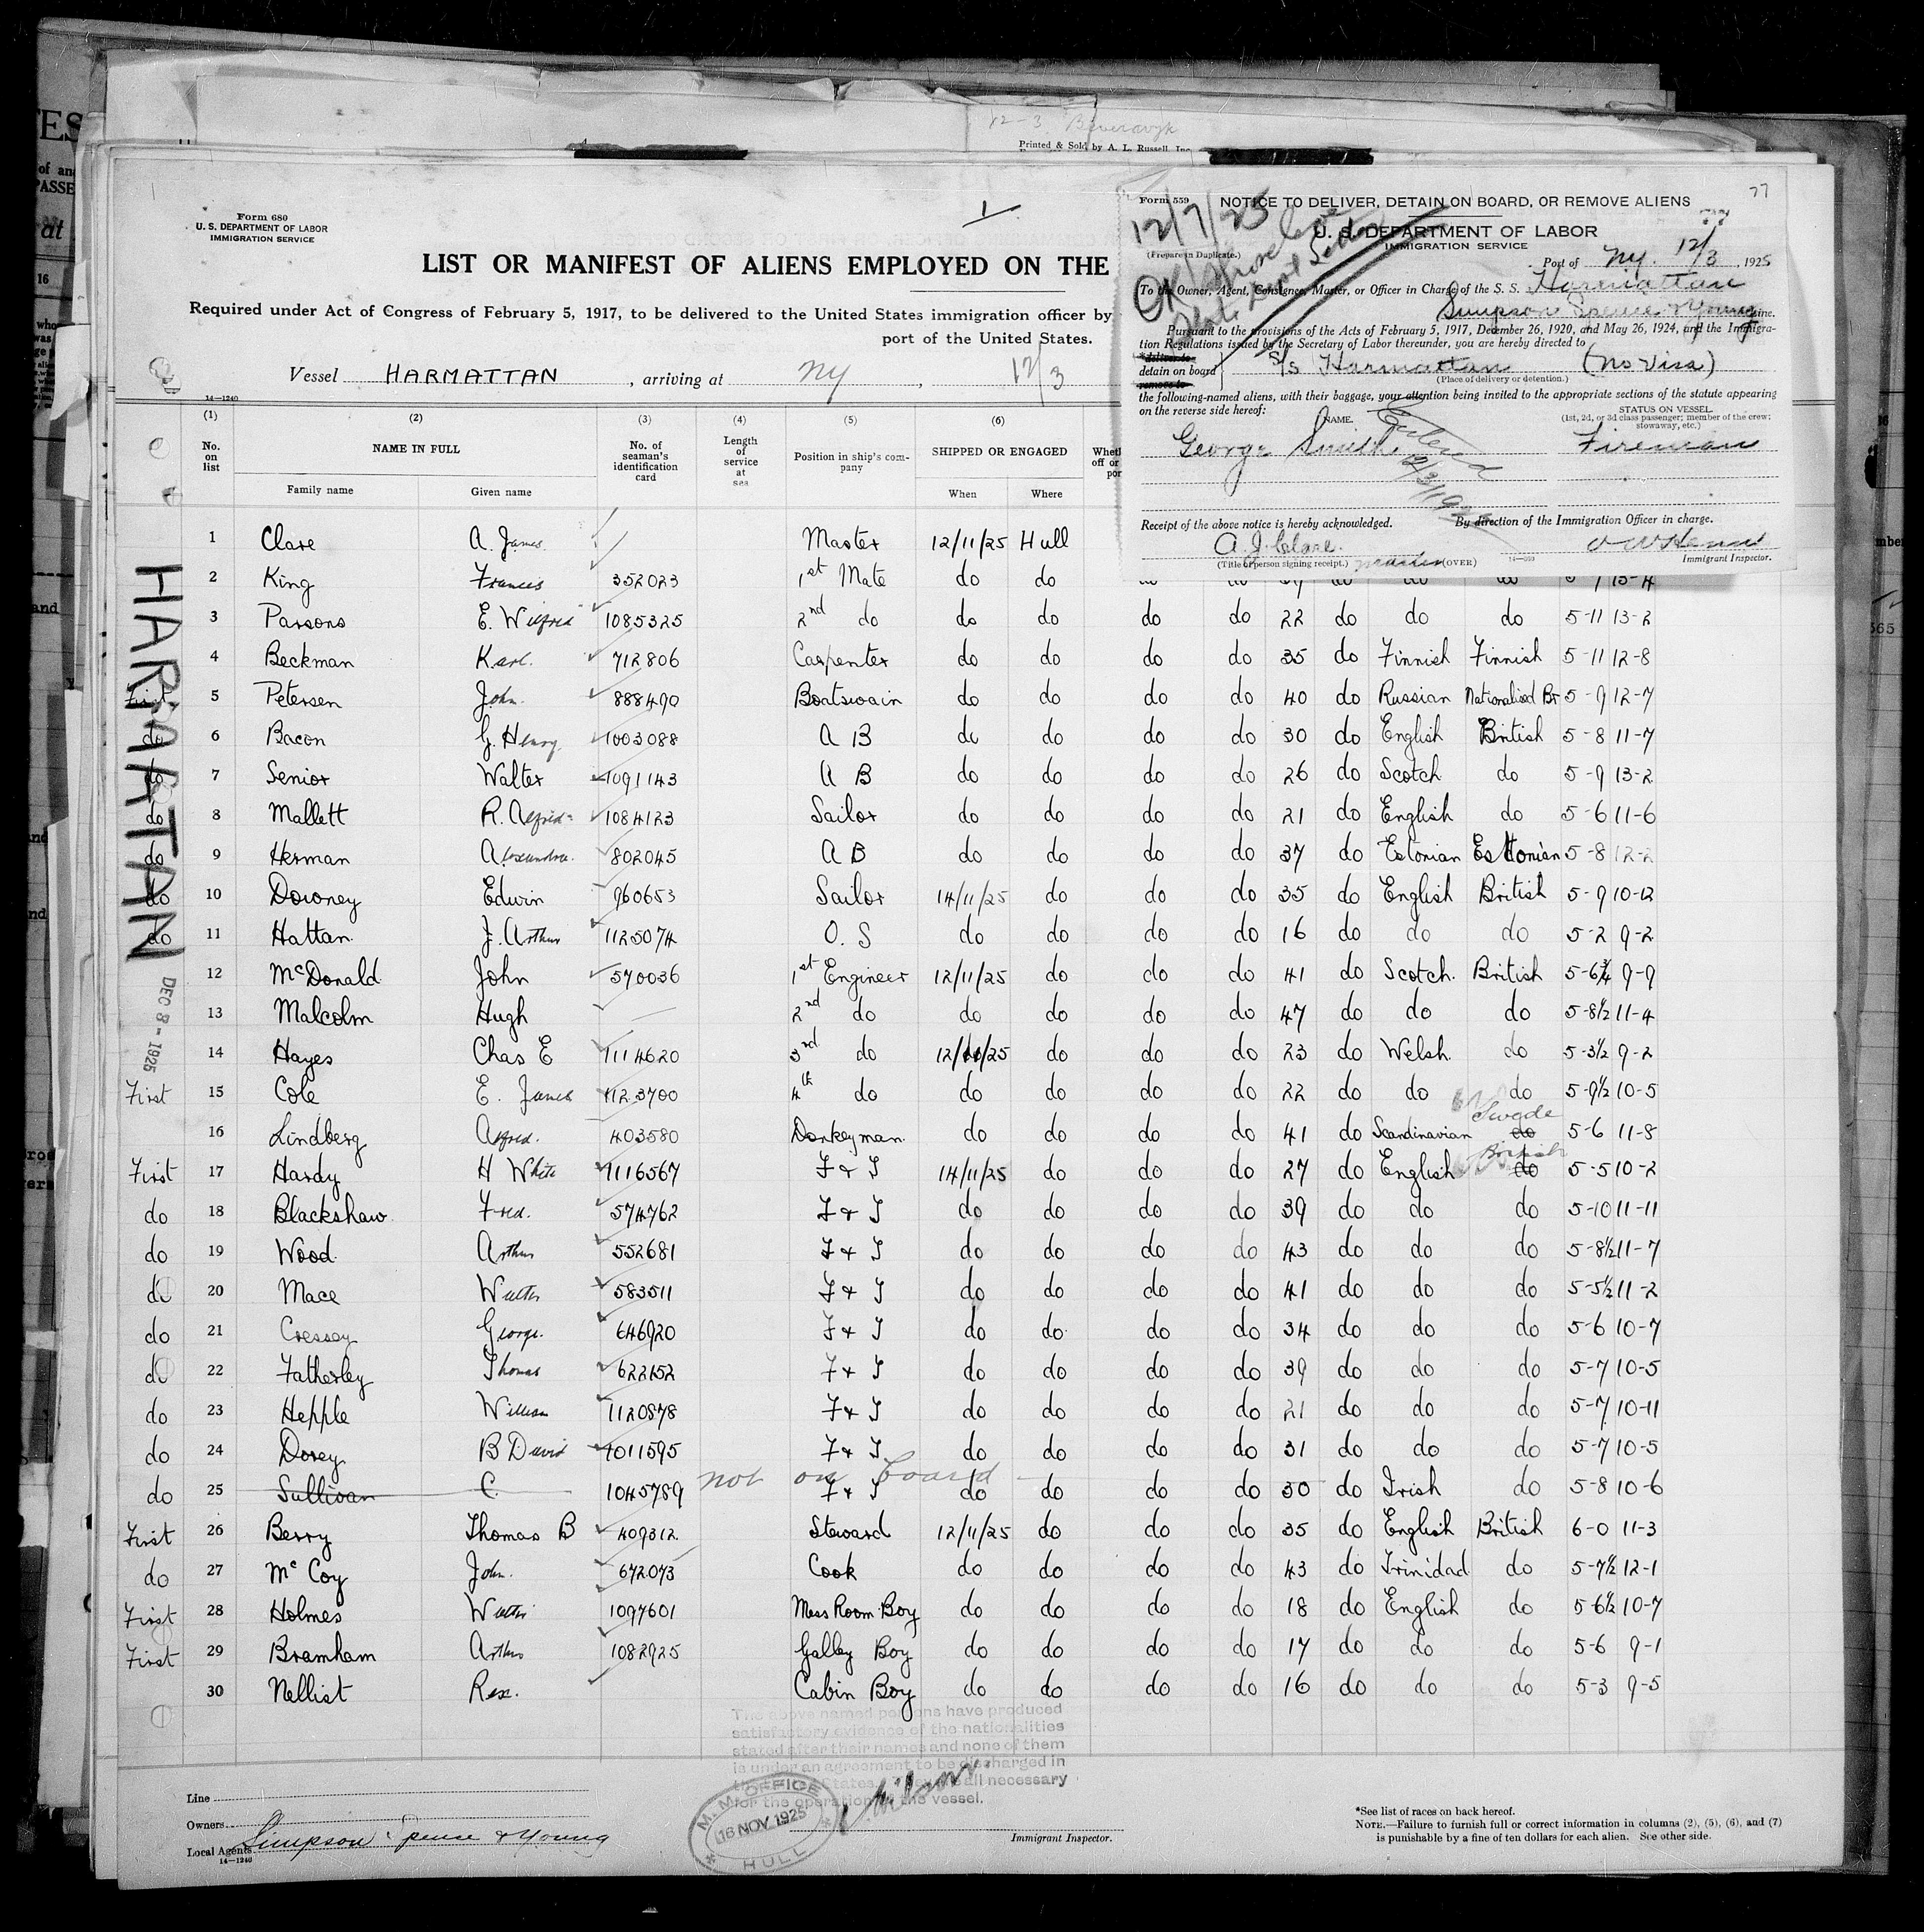 12-3 Beveravgk
Printed & Sold by A. L. Russell, Inc
Form 680
U. S. DEPARTMENT OF LABOR
IMMIGRATION SERVICE
1
LIST OR MANIFEST OF ALIENS EMPLOYED ON THE
Required under Act of Congress of February 5, 1917, to be delivered to the United States immigration officer by
port of the United States.
Vessel HARMATTAN, arriving at NY, 12/3
14-1240
77
Form 559 NOTICE TO DELIVER, DETAIN ON BOARD, OR REMOVE ALIENS
12/7/25
77
U. S. DEPARTMENT OF LABOR
IMMIGRATION SERVICE
(Prepare in Duplicate.)
OK
Port of NY. 12/3, 1925
To the Owner, Agent, Consignee, Master, or Officer in Charge of the S. S. Harmattan
Simpson Spence & Young Line.
Pursuant to the provisions of the Acts of February 5, 1917, December 26, 1920, and May 26, 1924, and the Immigra-
tion Regulations issued by the Secretary of Labor thereunder, you are hereby directed to
*deliver to
detain on board S/S Harmattan (No Visa)
remove to
(Place of delivery or detention.)
the following-named aliens, with their baggage, your attention being invited to the appropriate sections of the statute appearing
on the reverse side hereof:
NAME. STATUS ON VESSEL.
(1st, 2d, or 3d class passenger; member of the crew;
stowaway, etc.)
George Smith. Fireman
Receipt of the above notice is hereby acknowledged. By direction of the Immigration Officer in charge.
A. J. Clare.
(Title of person signing receipt.) master (OVER) 14-959 Immigrant Inspector.
(1) (2) (3) (4) (5) (6)
No. on list NAME IN FULL No. of seaman's identification card Length of service at sea Position in ship's company SHIPPED OR ENGAGED
Family name Given name When Where
HARMATTAN
DEC 8 - 1925
1 Clare A. James Master 12/11/25 Hull
2 King Frances 352023 1st Mate do do
3 Parsons E. Wilfred 1085325 2nd do do do do do 22 do do do 5-11 13-2
4 Beckman Karl. 712806 Carpenter do do do do 35 do Finnish Finnish 5-11 12-8
First 5 Petersen John. 888490 Boatswain do do do do 40 do Russian Nationalised Br 5-9 12-7
do 6 Bacon G. Henry 1003088 A B do do do do 30 do English British 5-8 11-7
do 7 Senior Walter 1091143 A B do do do do 26 do Scotch do 5-9 13-2
do 8 Mallett R. Alfred 1084123 Sailor do do do do 21 do English do 5-6 11-6
do 9 Herman Alexandra. 802045 A B do do do do 37 do Estonian Estonian 5-8 12-2
do 10 Downey Edwin 960653 Sailor 14/11/25 do do do 35 do English British 5-9 10-12
do 11 Hattan J. Arthur 1125074 O. S do do do do 16 do do do 5-2 9-2
12 McDonald John 570036 1st Engineer 12/11/25 do do do 41 do Scotch. British 5-6¾ 9-9
13 Malcolm Hugh — 2nd do do do do do 47 do do do 5-8½ 11-4
14 Hayes Chas E 1114620 3rd do 12/11/25 do do do 23 do Welsh. do 5-3½ 9-2
First 15 Cole E. James 1123700 4th do do do do do 22 do do do 5-9½ 10-5
16 Lindberg Alfred. 403580 Donkeyman. do do do do 41 do Scandinavian do Swede 5-6 11-8
First 17 Hardy H White 1116567 F & T 14/11/25 do do do 27 do English do British 5-5 10-2
do 18 Blackshaw Fred. 574762 F & T do do do do 39 do do do 5-10 11-11
do 19 Wood Arthur 552681 F & T do do do do 43 do do do 5-8½ 11-7
do 20 Mace Walter 583511 F & T do do do do 41 do do do 5-5½ 11-2
do 21 Cressey George. 646920 F & T do do do do 34 do do do 5-6 10-7
do 22 Fatherley Thomas 622152 F & T do do do do 39 do do do 5-7 10-5
do 23 Hepple William 1120878 F & T do do do do 21 do do do 5-7 10-11
do 24 Dorey B David 1011595 F & T do do do do 31 do do do 5-7 10-5
not on board
do 25 Sullivan C. 1045789 F & T do do do do 30 do Irish do 5-8 10-6
First 26 Berry Thomas B 409312 Steward 12/11/25 do do do 35 do English British 6-0 11-3
do 27 McCoy John. 672073 Cook do do do do 43 do Trinidad do 5-7½ 12-1
First 28 Holmes Walter 1097601 Mess Room Boy do do do do 18 do English do 5-6½ 10-7
First 29 Bramham Arthur 1082925 Galley Boy do do do do 17 do do do 5-6 9-1
30 Nellist Rex. Cabin Boy do do do do 16 do do do 5-3 9-5
The above named persons have produced
satisfactory evidence of the nationalities
stated after their names and none of them
is under an agreement to be discharged in
the United States all necessary
for the operation of the vessel.
M. M. OFFICE
16 NOV 1925
HULL
Line
Owners
Local Agents Simpson Spence & Young
14-1240
Immigrant Inspector.
*See list of races on back hereof.
NOTE.—Failure to furnish full or correct information in columns (2), (5), (6), and (7)
is punishable by a fine of ten dollars for each alien. See other side.